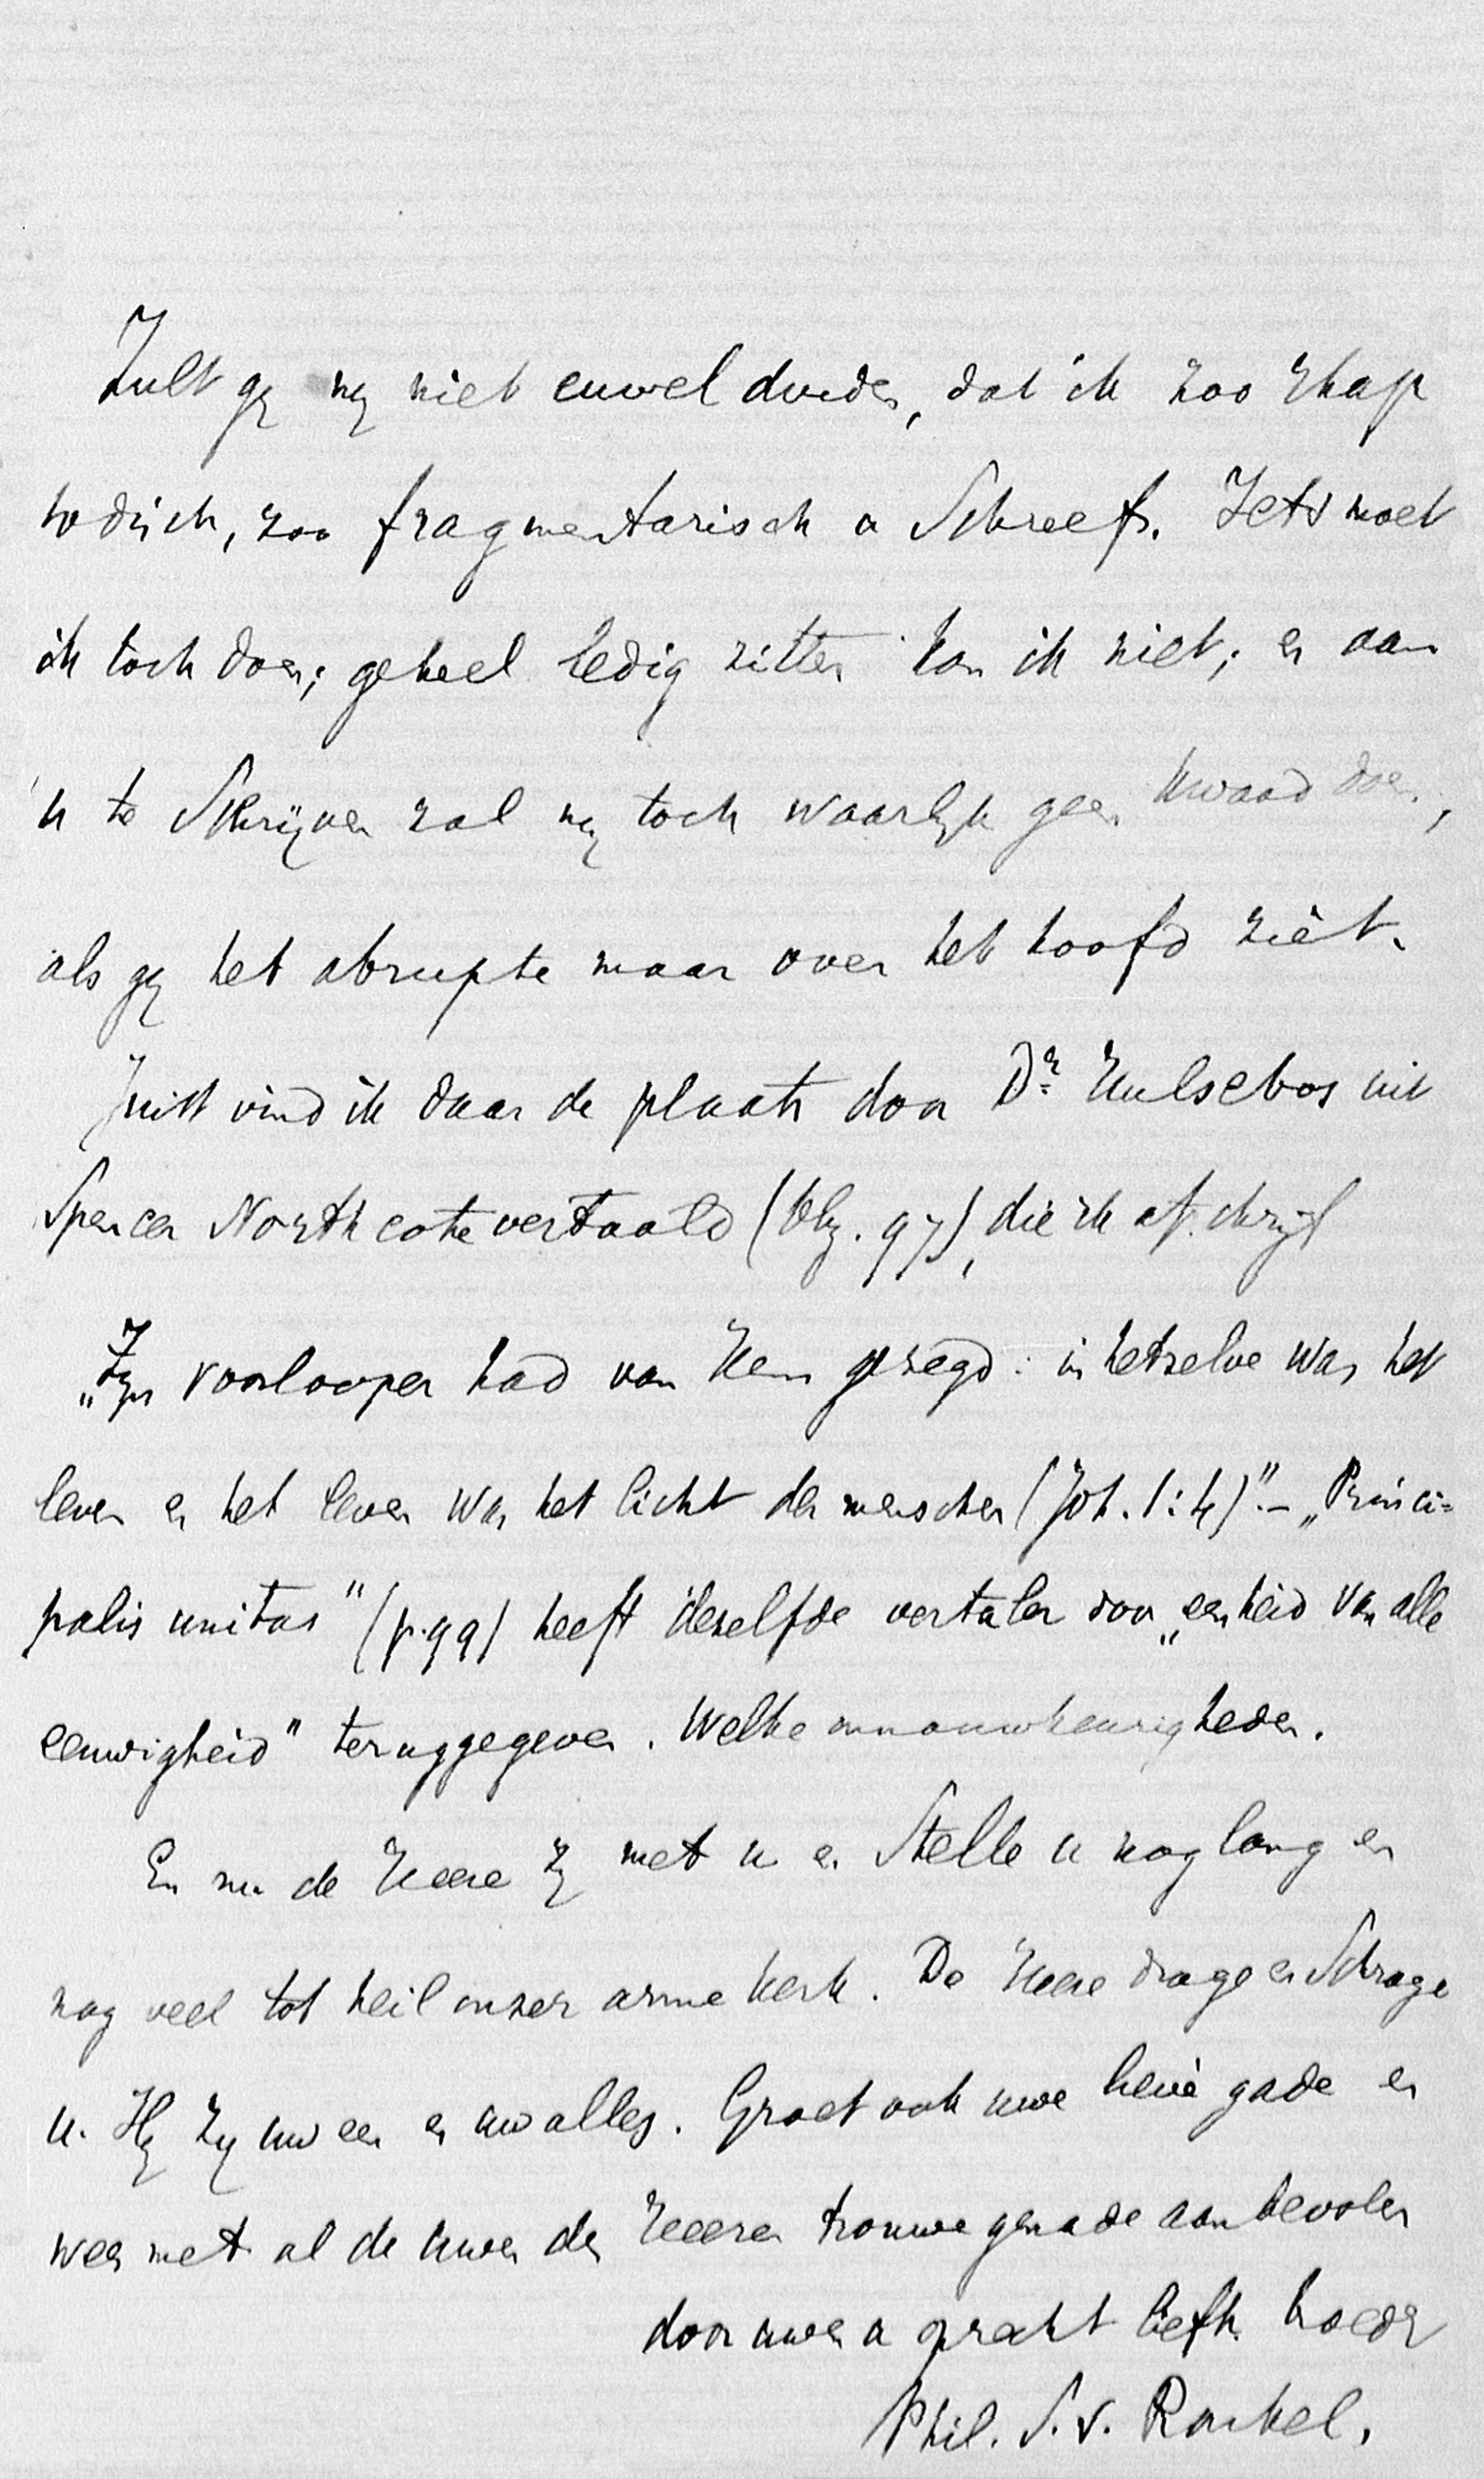 Zult gij mij niet euvel duiden, dat ik zoo rhap
sodisch, zoo fragmentarisch u schreef. Iets moet
ik toch doen; geheel ledig zitten kan ik niet; en aan
u te schrijven zal mij toch waarlijk geen kwaad doen,
als gij het abrupte maar over het hoofd ziet.
Juist vind ik daar de plaats door Dr Hulsebos uit
Spencer Northcote vertaald (blz. 97), die ik afschrijf
„Zijn voorlooper had van Hem gezegd: in hetzelve was het
leven en het leven was het licht der menschen (Joh. 1:4)”. – „Princi=
palis unitas” (p. 99) heeft dezelfde vertaler door „eenheid van alle
eeuwigheid” teruggegeven. Welke onnauwkeurigheden.
En nu de Heere zij met u en stelle u nog lang en
nog veel tot heil onzer arme kerk. De Heere drage en schrage
u. Hij zij uw een en uw alles. Groet ook uwe lieve gade en
wees met al de uwen des Heeren trouwe genade aanbevolen
door uwen u oprecht liefh. broeder
Phil. S. v. Ronkel.